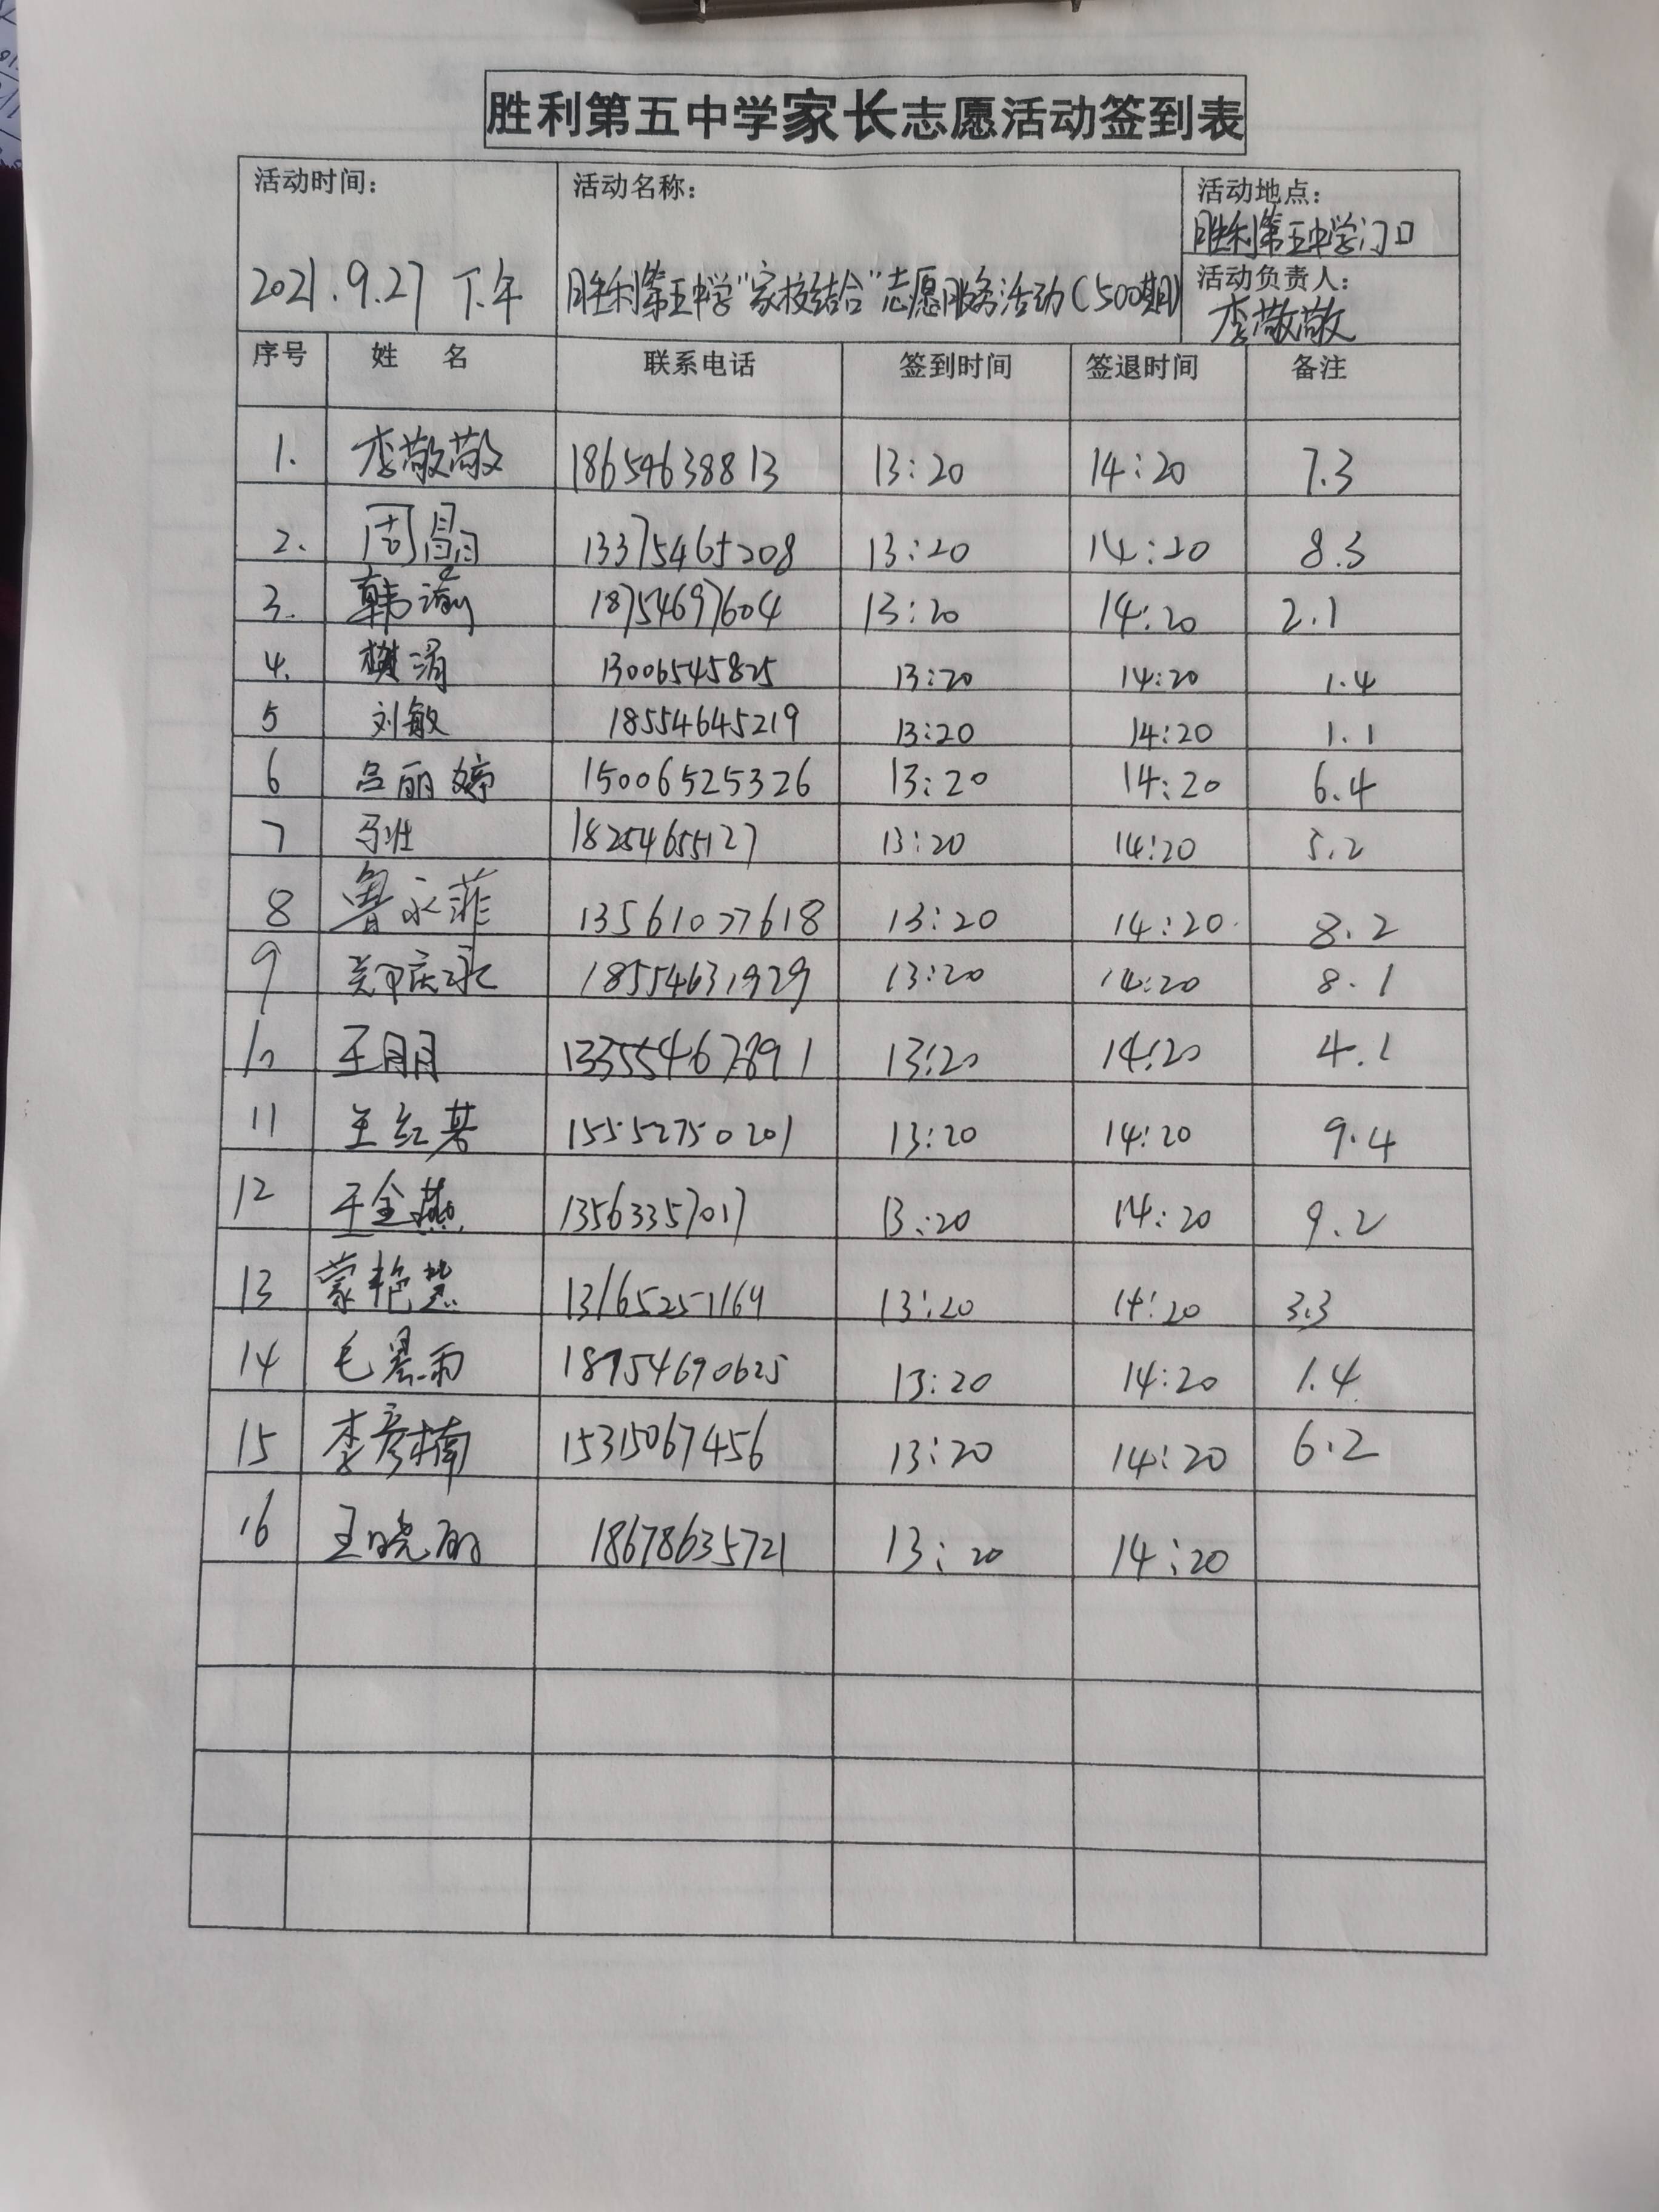 胜利第五中学家长志愿活动签到表
活动时间: 活动名称: 活动地点:
胜利第五中学门口
2021.9.27 下午 胜利第五中学"家校结合"志愿服务活动(500期) 活动负责人:
李敬敬
序号 姓 名 联系电话 签到时间 签退时间 备注
1. 李敬敬 18654638813 13:20 14:20 7.3
2. 周晶 13375465208 13:20 14:20 8.3
3. 韩瀹 18754697604 13:20 14:20 2.1
4. 13006545825 13:20 14:20 1.4
5 刘敏 18554645219 13:20 14:20 1.1
6 吕丽婷 15006525326 13:20 14:20 6.4
7 马壮 18254655127 13:20 14:20 5.2
8 鲁永菲 13561077618 13:20 14:20 8.2
9 18554631929 13:20 14:20 8.1
10 王朋 13:20 14:20 4.1
11 王红英 15552750201 13:20 14:20 9.4
12 王金燕 13563357017 13:20 14:20 9.2
13 蒙艳慧 13165251169 13:20 14:20 3.3
14 18954690625 13:20 14:20 1.4
15 李彦楠 15315067456 13:20 14:20 6.2
16 王晓丽 18678635721 13:20 14:20